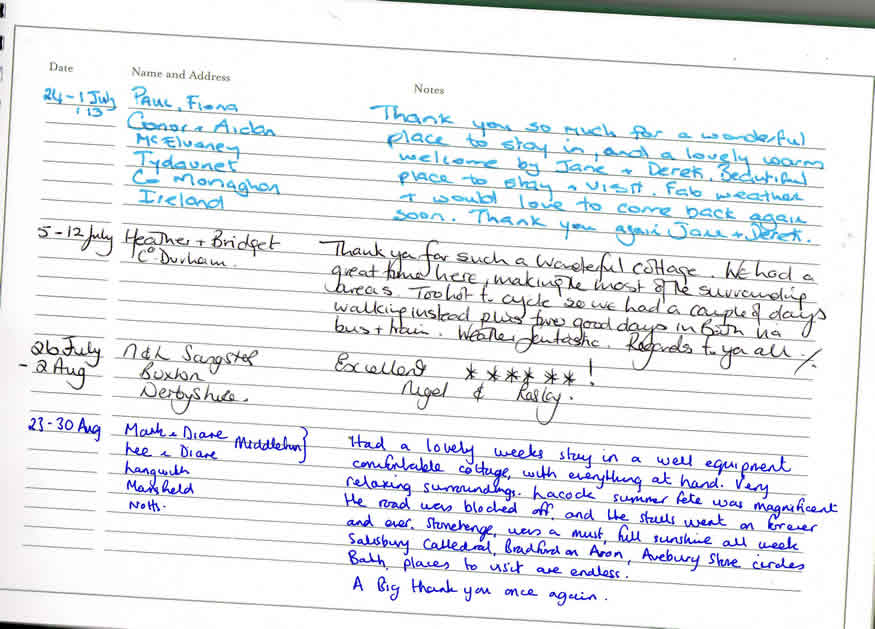 Date Name and Address Notes
24-1 July Paul, Fiona
'13
Conor + Aidan
McElvaney
Tydavnet
Co Monaghan
Ireland
Thank you so much for a wonderful
place to stay in, and a lovely warm
welcome by Jane + Derek. Beautiful
place to stay + visit. Fab weather
+ would love to come back again
soon. Thank you again Jane + Derek.
5-12 July Heather + Bridget
Co Durham.
Thank you for such a wonderful cottage. We had a
great time here, making the most of the surrounding
areas. Too hot to cycle so we had a couple of days
walking instead plus two good days in Bath via
bus + train. Weather fantastic. Regards to ya all
26 July N & L Sangster
- 2 Aug Buxton
Derbyshire.
Excellent ******!
Nigel &
23-30 Aug Mark + Diane Middleton}
Lee + Diane
Langwith
Mansfield
Notts.
Had a lovely weeks stay in a well equipment
comfortable cottage, with everything at hand. Very
relaxing surroundings. Lacock summer fete was magnificent
the road was blocked off, and the stalls went on forever
and ever. Stonehenge, was a must, full sunshine all week
Salisbury Cathedral, Bradford on Avon, Avebury Stone circles
Bath, places to visit are endless.
A Big thank you once again.